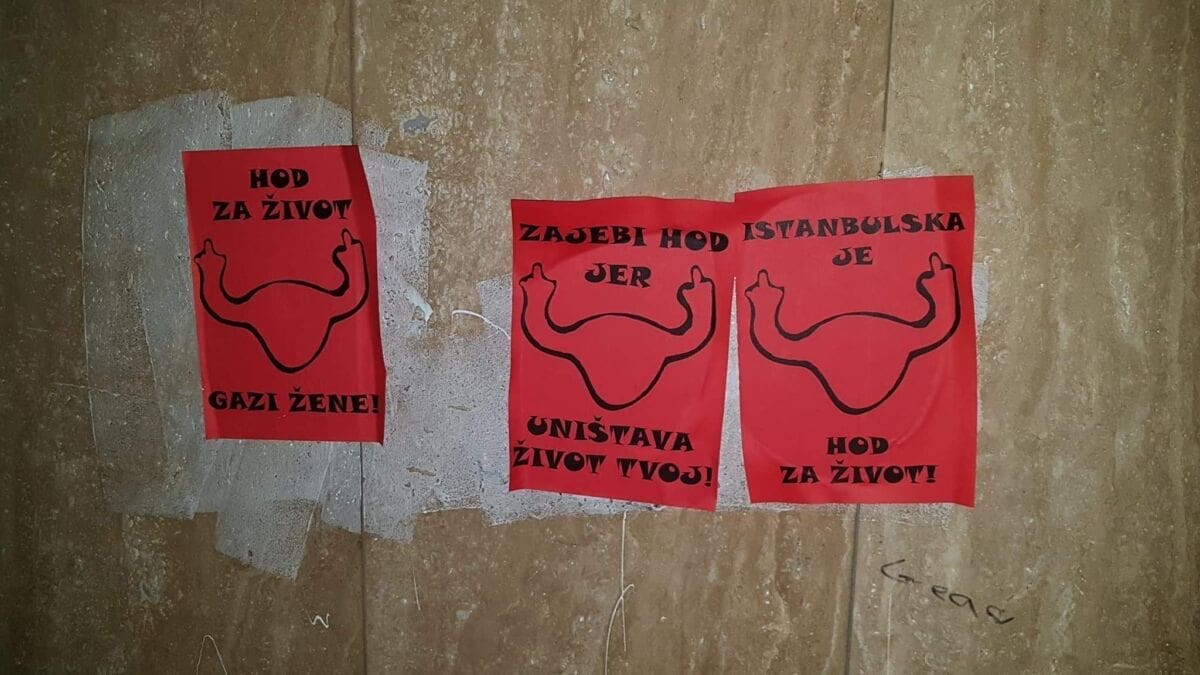 HOD
ZA ŽIVOT
GAZI ŽENE!
ZAJEBI HOD
JER
UNIŠTAVA
ŽIVOT TVOJ!
ISTANBULSKA
JE
HOD
ZA ŽIVOT!